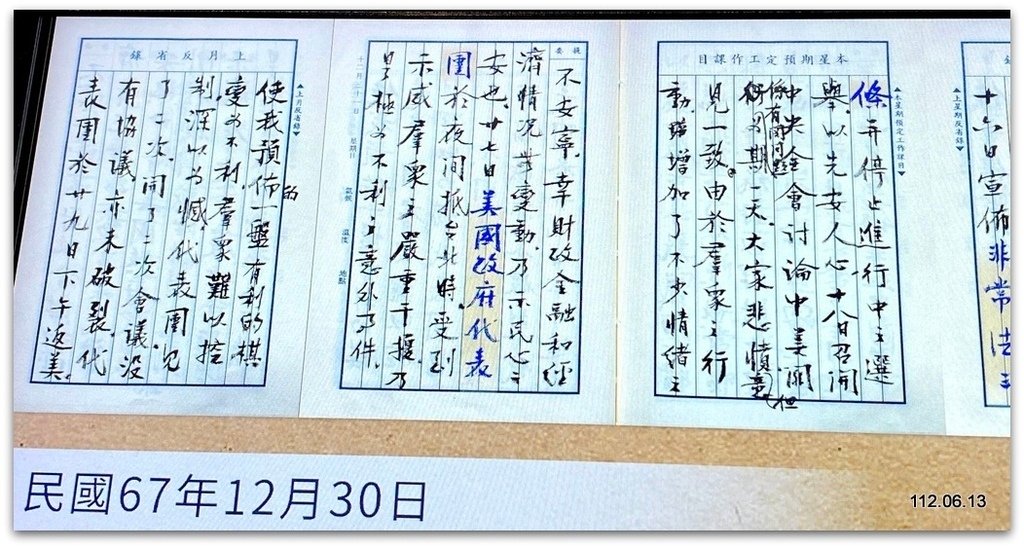 十六日宣佈非常法
本星期預定工作課目
▲上星期反省錄▼
▲上星期預定工作課目▼
條并停止進行中之選
舉，以先安人心，十八日召開
中央全會討論中美關
係有關問題
一天，大家悲憤，意
但
見一致。由於羣眾之行
動，強增加了不少情緒之
提要
不安寧，幸財政金融和經
濟情況，無變動，乃示民心之
安也。廿七日美國政府代表
團於夜間抵台北時，受到
示威羣眾之嚴重干擾，乃
是極為不利之意外事件，
十二月三十一日 星期日 氣候 溫度 地點
上月反省錄
▲上月反省錄▼
使我預佈的一盤有利的棋
變為不利，羣眾難以控
制，深以為憾，代表團見
了二次，開了二次會議，沒
有協議，亦未破裂，代
表團於廿九日下午返美。
民國67年12月30日
112.06.13